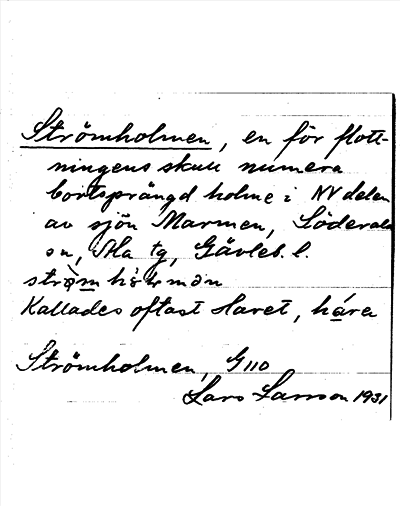 Strömholmen, en för flott-
ningens skull numera
bortsprängd holme i NV delen
av sjön Marmen, Söderala
sn, Ala tg, Gävleb. l.
Kallades oftast Haret, hára
Strömholmen, G 110
Lars Larsson 1931